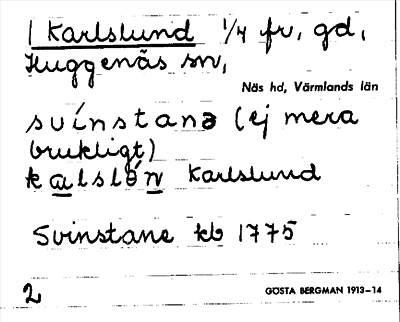 1 Karlslund 1/4 fr, gd,
Huggenäs sn,
Näs hd, Värmlands län
svínstanə (ej mera
brukligt)
kalslə́n Karlslund
Svinstane kb 1775
2
GÖSTA BERGMAN 1913–14